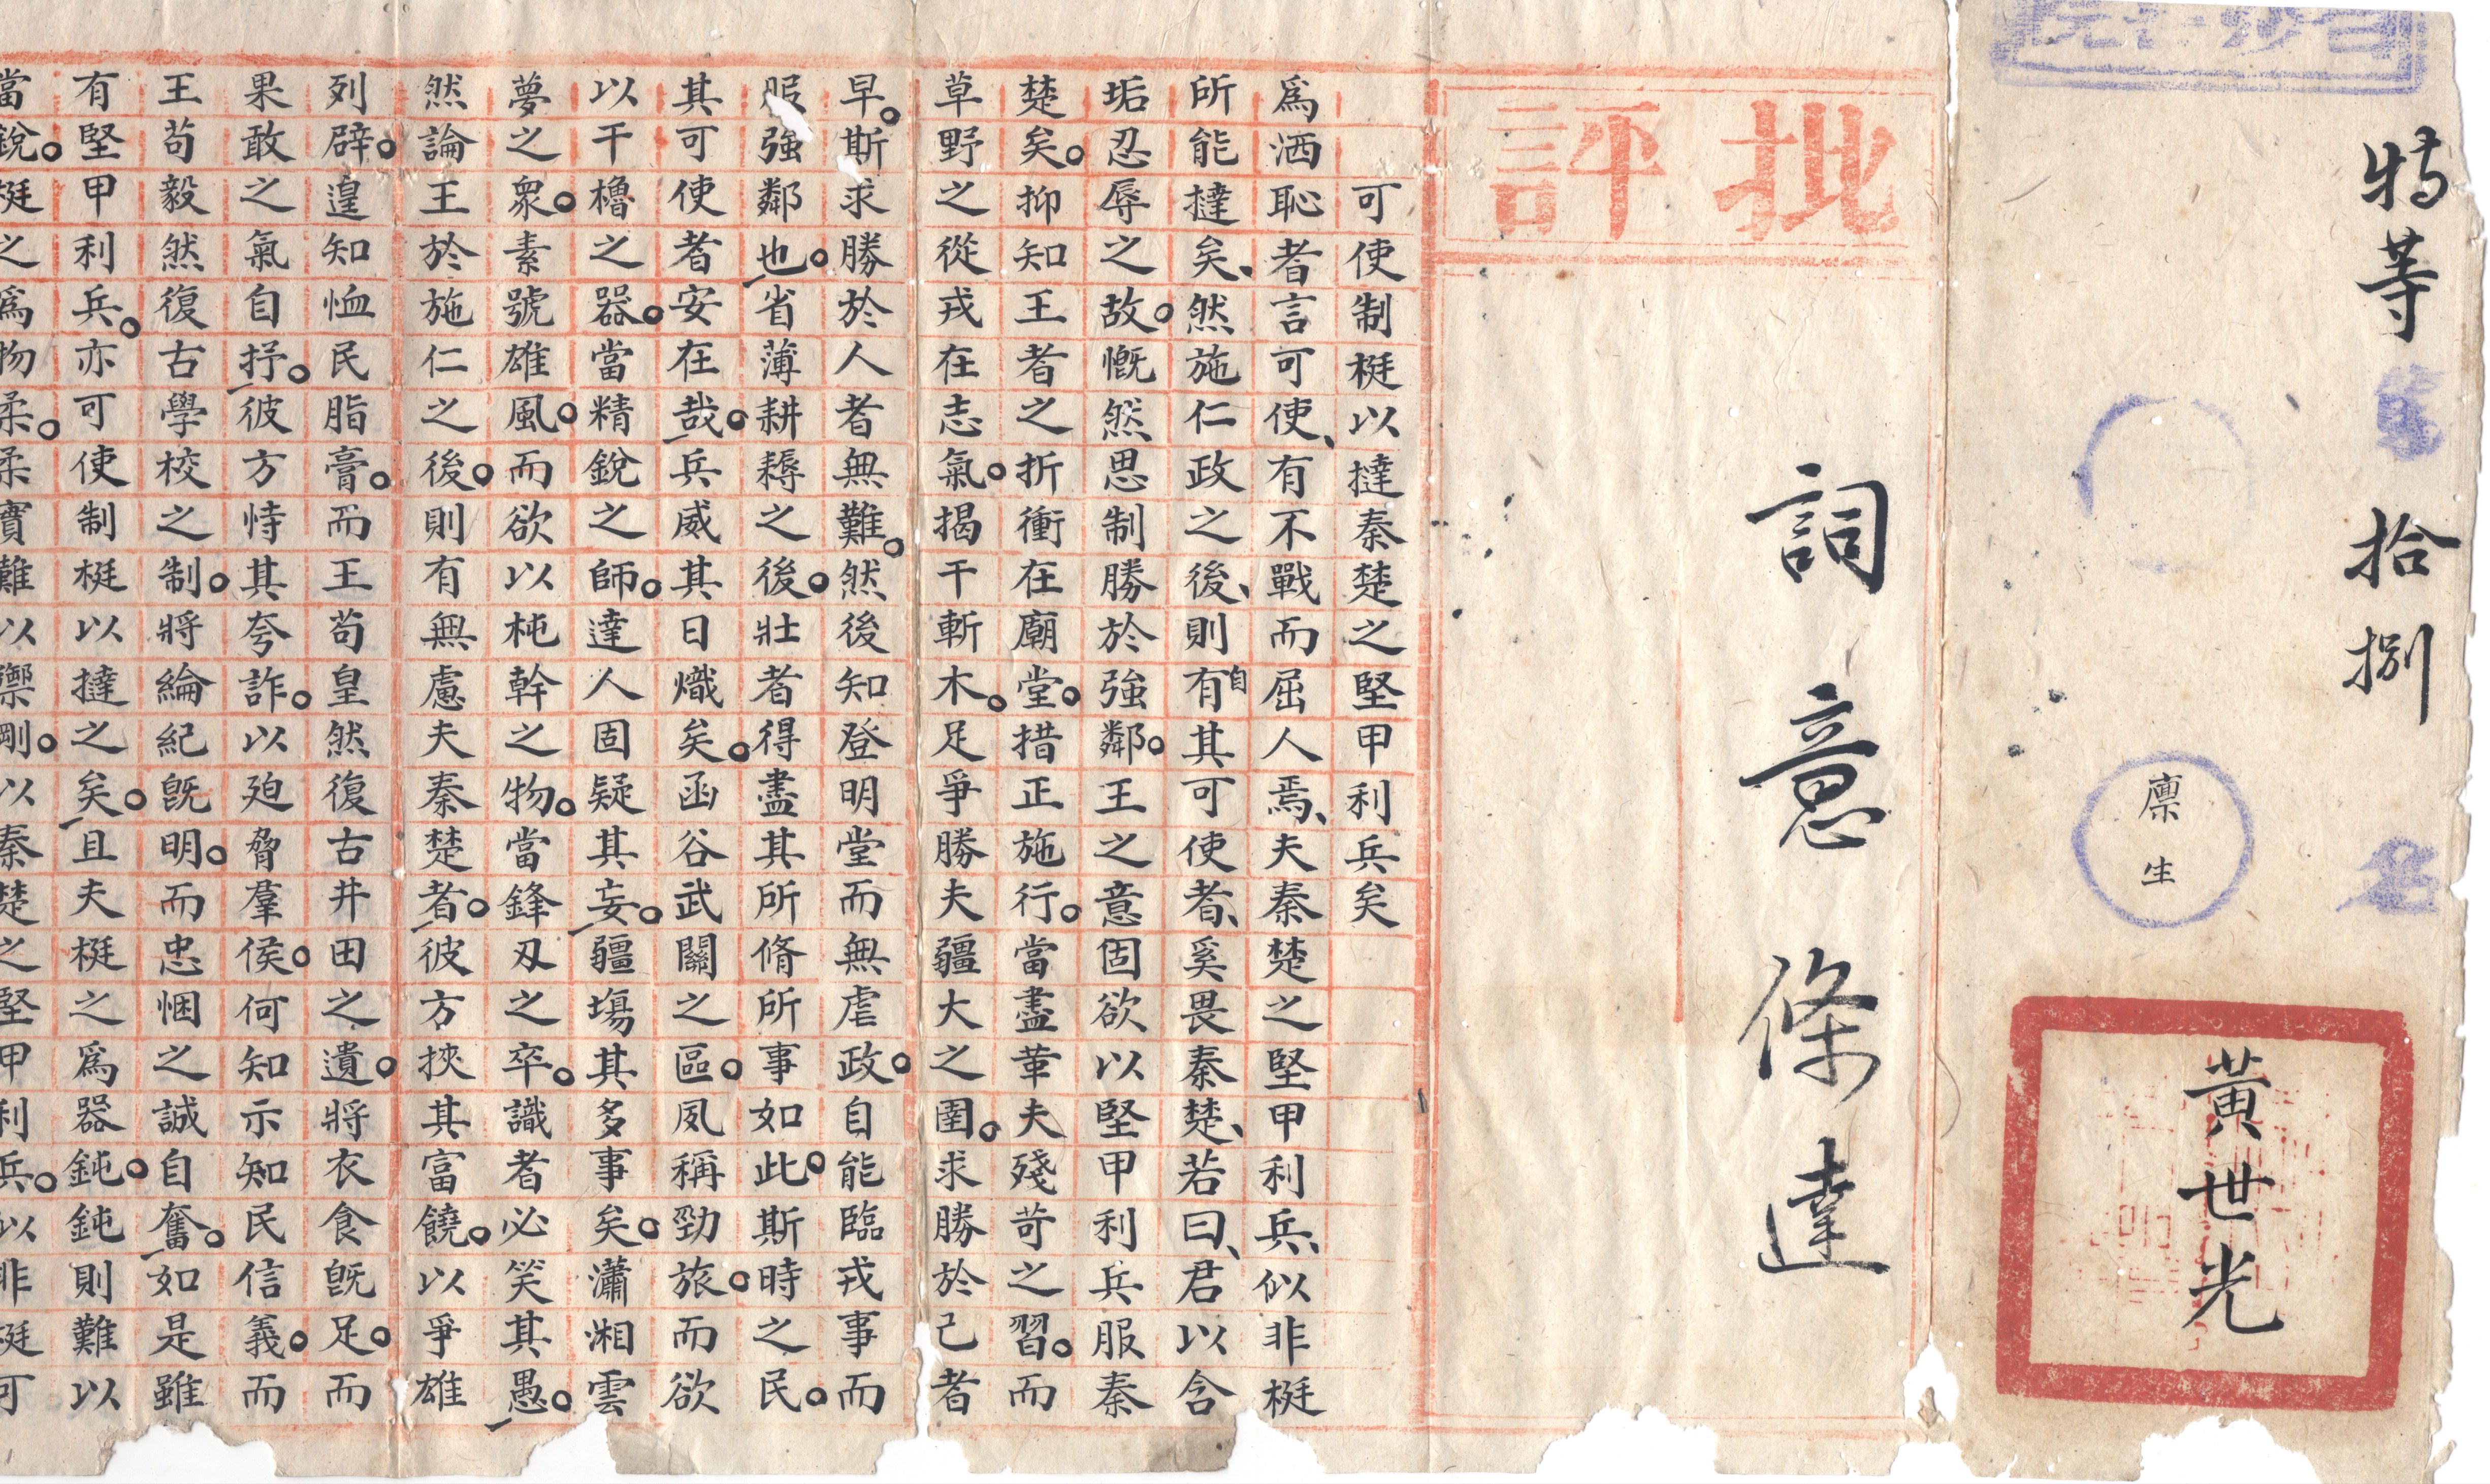 特等第拾捌名
廩生
黃世光
批評
詞意條達
可使制梃以撻秦楚之堅甲利兵矣
爲洒恥者言可使、有不戰而屈人焉、夫秦楚之堅甲利兵、似非梃
所能撻矣、然施仁政之後、則有自其可使者、奚畏秦楚、若曰、君以含
垢忍辱之故。慨然思制勝於強鄰。王之意固欲以堅甲利兵服秦
楚矣。抑知王者之折衝在廟堂。措正施行。當盡革夫殘苛之習。而
草野之從戎在志氣。揭干斬木。足爭勝夫疆大之圉。求勝於己者
早。斯求勝於人者無難。然後知登明堂而無虐政。自能臨戎事而
服強鄰也。省薄耕耨之後。壯者得盡其所脩所事如此。斯時之民。
其可使者安在哉。兵威其日熾矣。函谷武關之區。夙稱勁旅。而欲
以干櫓之器。當精銳之師。達人固疑其妄。疆場其多事矣。瀟湘雲
夢之眾。素號雄風。而欲以杶幹之物。當鋒刄之卒。識者必笑其愚。
然論王於施仁之後。則有無慮夫秦楚者。彼方挾其富饒。以爭雄
列辟。遑知恤民脂膏。而王苟皇然復古井田之遺。將衣食旣足。而
果敢之氣自抒。彼方恃其夸詐。以廹脅羣侯。何知示知民信義。而
王苟毅然復古學校之制。將綸紀旣明。而忠悃之誠自奮。如是雖
有堅甲利兵。亦可使制梃以撻之矣。且夫梃之爲器鈍。鈍則難以
當銳。梃之爲物柔。柔實難以禦剛。以秦楚之堅甲利兵。以非梃可